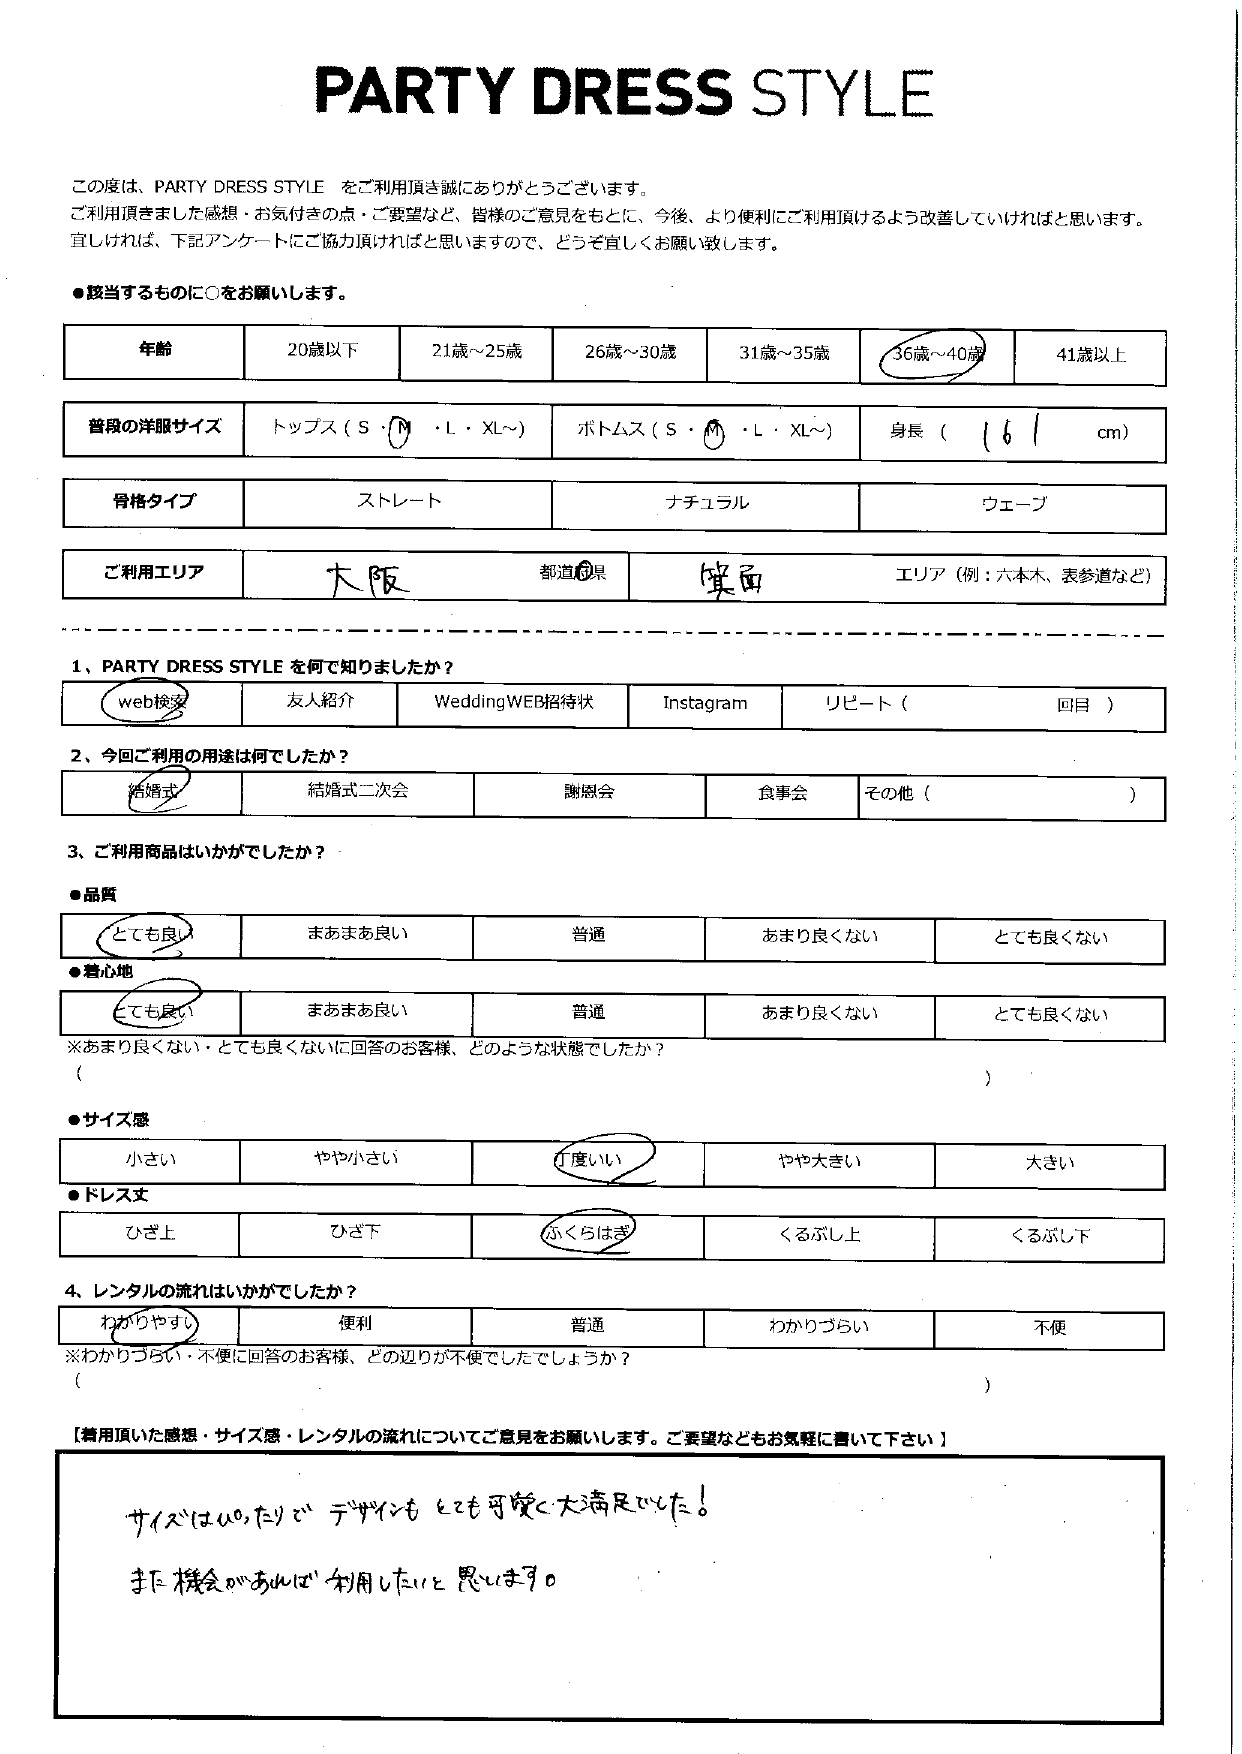 PARTY DRESS STYLE
この度は、PARTY DRESS STYLE　をご利用頂き誠にありがとうございます。
ご利用頂きました感想・お気付きの点・ご要望など、皆様のご意見をもとに、今後、より便利にご利用頂けるよう改善していければと思います。
宜しければ、下記アンケートにご協力頂ければと思いますので、どうぞ宜しくお願い致します。
●該当するものに○をお願いします。
年齢 20歳以下 21歳～25歳 26歳～30歳 31歳～35歳 36歳～40歳 41歳以上
普段の洋服サイズ トップス ( S ・ M ・ L ・ XL～) ボトムス ( S ・ M ・ L ・ XL～) 身長 ( 161 cm)
骨格タイプ ストレート ナチュラル ウェーブ
ご利用エリア 大阪 都道府県 箕面 エリア（例：六本木、表参道など）
1、PARTY DRESS STYLE を何で知りましたか？
web検索 友人紹介 WeddingWEB招待状 Instagram リピート（ 回目 ）
2、今回ご利用の用途は何でしたか？
結婚式 結婚式二次会 謝恩会 食事会 その他（ ）
3、ご利用商品はいかがでしたか？
●品質
とても良い まあまあ良い 普通 あまり良くない とても良くない
●着心地
とても良い まあまあ良い 普通 あまり良くない とても良くない
※あまり良くない・とても良くないに回答のお客様、どのような状態でしたか？
( )
●サイズ感
小さい やや小さい 丁度いい やや大きい 大きい
●ドレス丈
ひざ上 ひざ下 ふくらはぎ くるぶし上 くるぶし下
4、レンタルの流れはいかがでしたか？
わかりやすい 便利 普通 わかりづらい 不便
※わかりづらい・不便に回答のお客様、どの辺りが不便でしたでしょうか？
( )
【着用頂いた感想・サイズ感・レンタルの流れについてご意見をお願いします。ご要望などもお気軽に書いて下さい 】
サイズはぴったりで デザインも とても可愛く 大満足でした！
また機会があれば 利用したいと 思います。